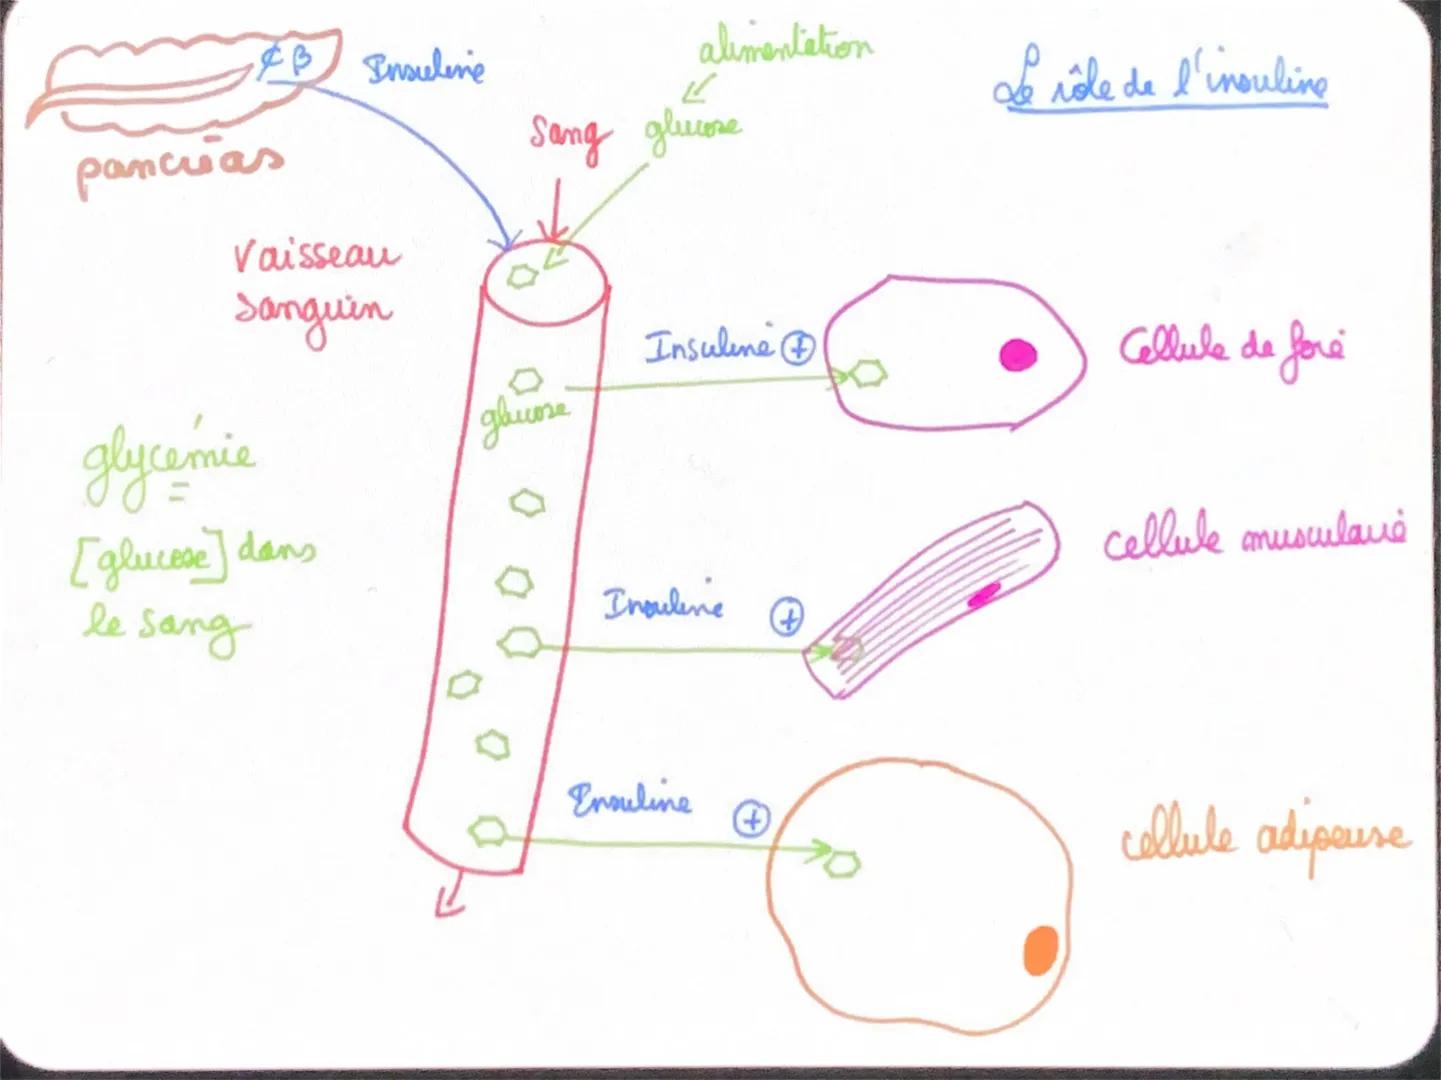 ¢ β
Insuline
alimentation
Le rôle de l'insuline
Sang
glucose
pancréas
Vaisseau
Sanguin
Insuline +
Cellule de foie
glucose
glycémie
=
[glucose] dans
le sang
cellule musculaire
Insuline +
Insuline +
cellule adipeuse